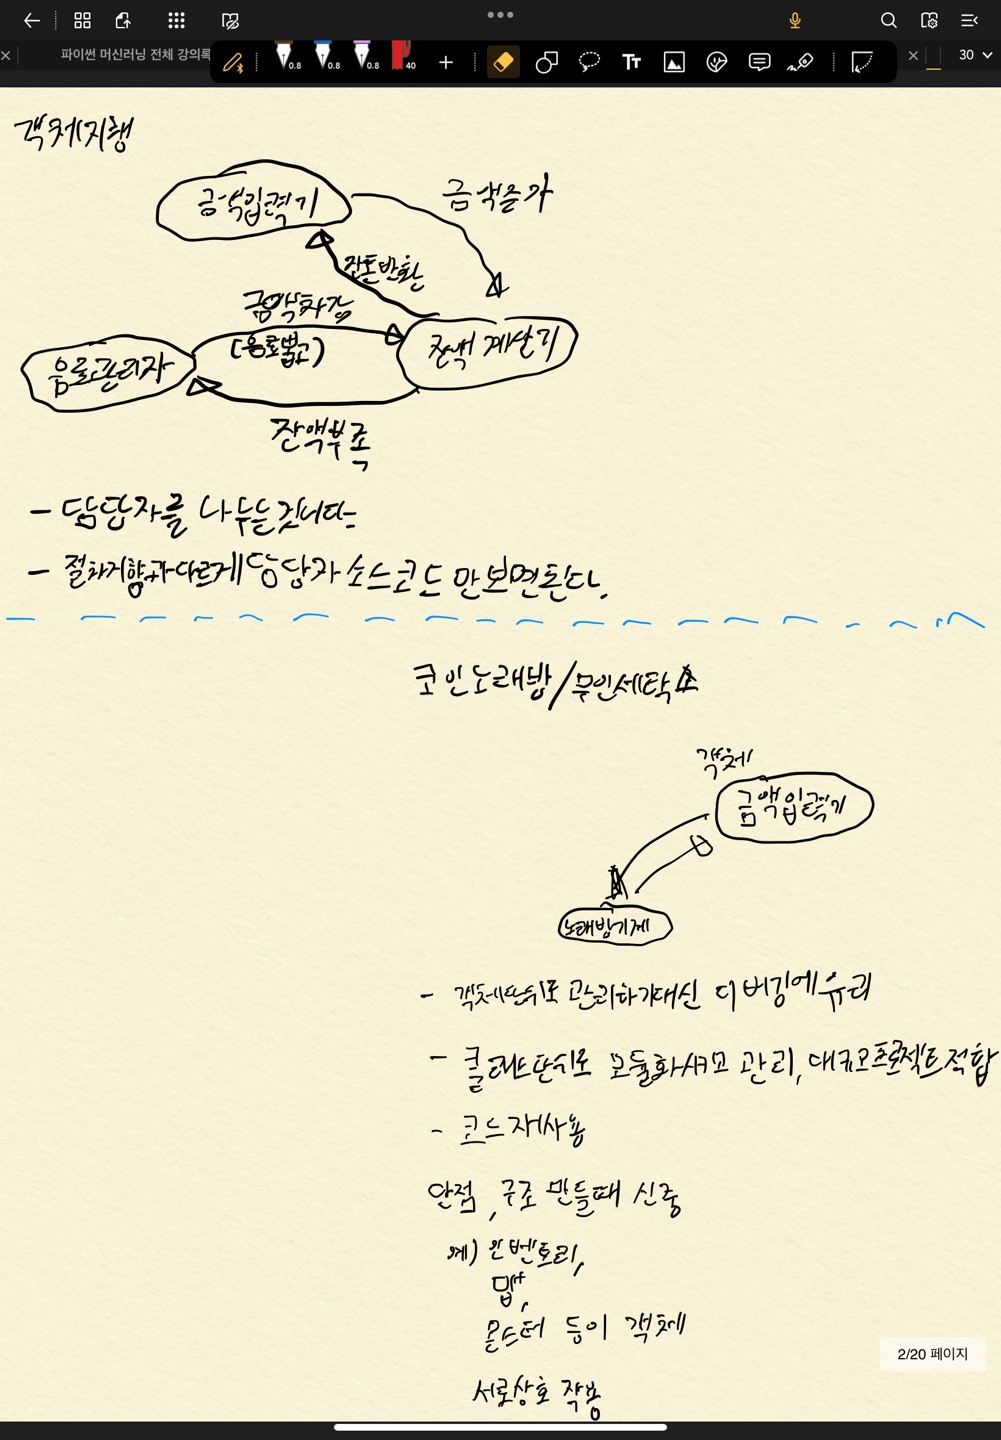 파이썬 머신러닝 전체 강의록
0.8
0.8
0.8
40
Tт
30
객체지향
금액입력기
금액증가
잔돈반환
금액차감
(음료뽑고)
음료관리자
잔액 계산기
잔액부족
- 담당자를 나누는것이다
- 절차지향과 다르게 담당자 소스코드 만 보면된다.
코인노래방/무인세탁소
객체
금액입력기
노래방기계
- 객체단위로 관리하기대신 디버깅에 유리
- 클래스단위로 모듈화시키고 관리, 대규모프로젝트적합
- 코드 재사용
단점, 구조 만들때 신중
예) 인벤토리,
맵,
몬스터 등이 객체
서로상호 작용
2/20 페이지